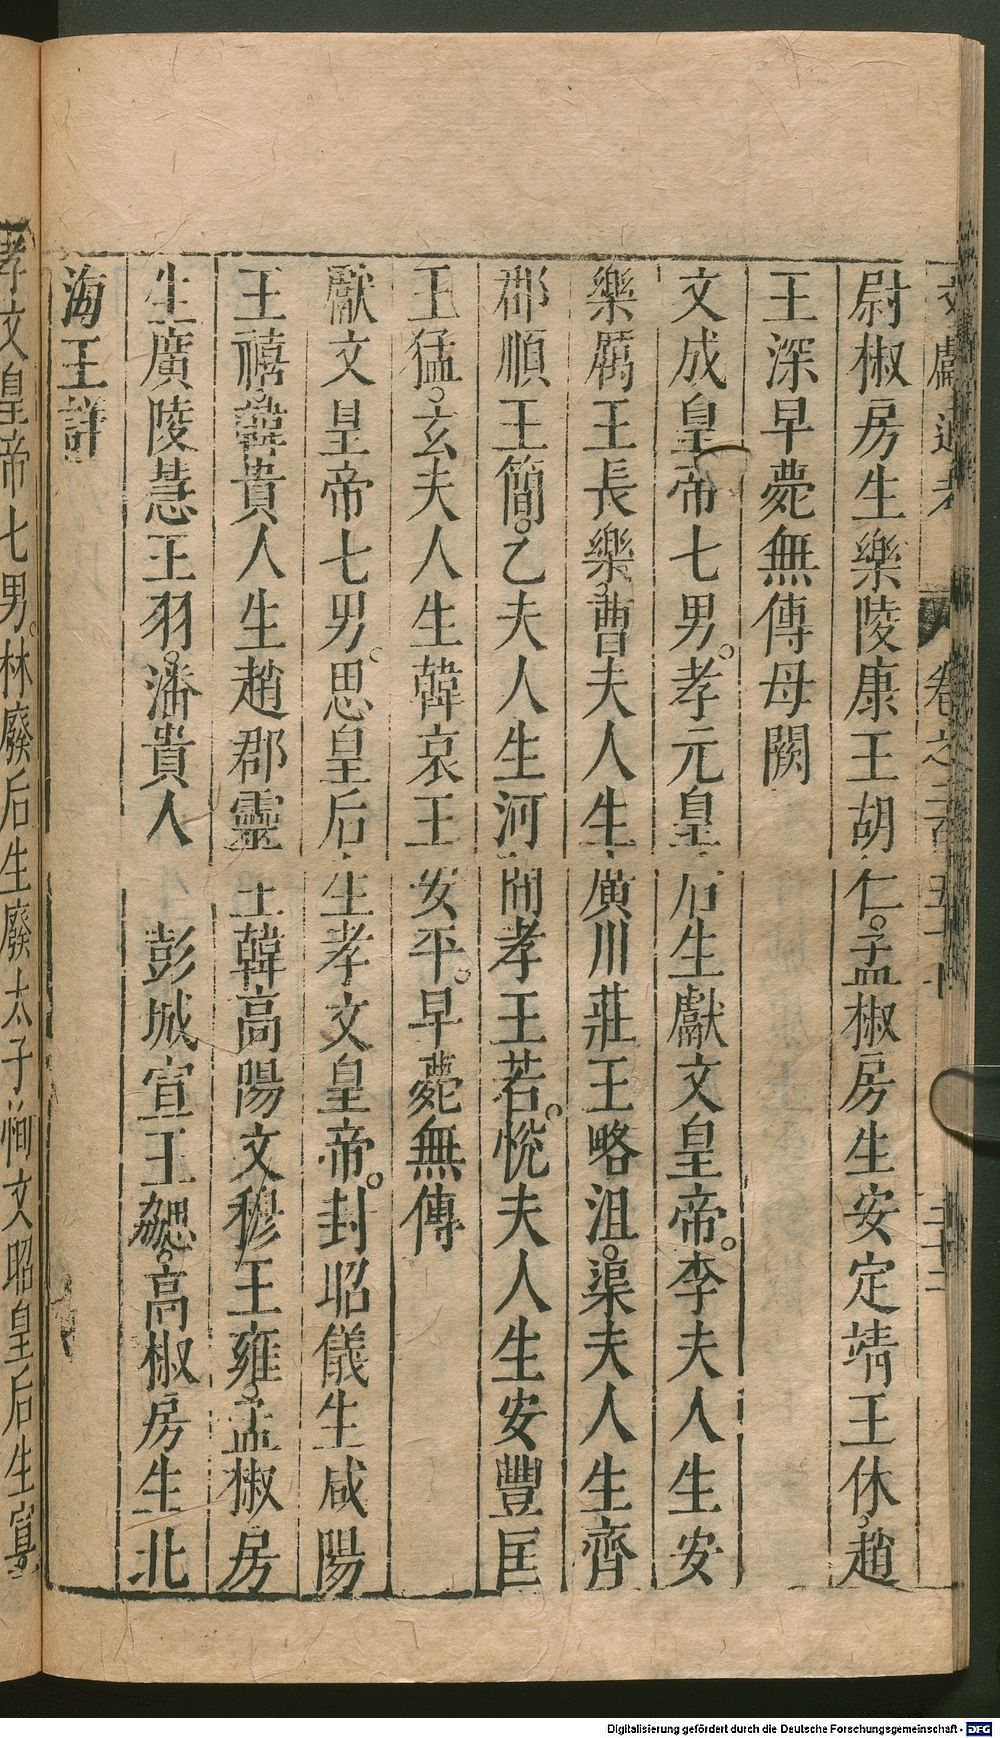 尉椒房生樂陵康王胡仁。孟椒房生安定靖王休。趙
王深早薨無傳母闕
文成皇帝七男。孝元皇后生獻文皇帝。李夫人生安
樂厲王長樂曹夫人生廣川莊王略沮。渠夫人生齊
郡順王簡。乙夫人生河間孝王若。悅夫人生安豐匡
王猛。玄夫人生韓哀王安平。早薨無傳
獻文皇帝七男。思皇后生孝文皇帝。封昭儀生咸陽
王禧。韓貴人生趙郡靈王韓高陽文穆王雍。孟椒房
生廣陵慧王羽。潘貴人彭城宣王勰。高椒房生北
海王詳
孝文皇帝七男。林廢后生廢太子恂文昭皇后生宣
文獻通考 卷之二百五十七 三十二
Digitalisierung gefördert durch die Deutsche Forschungsgemeinschaft - DFG